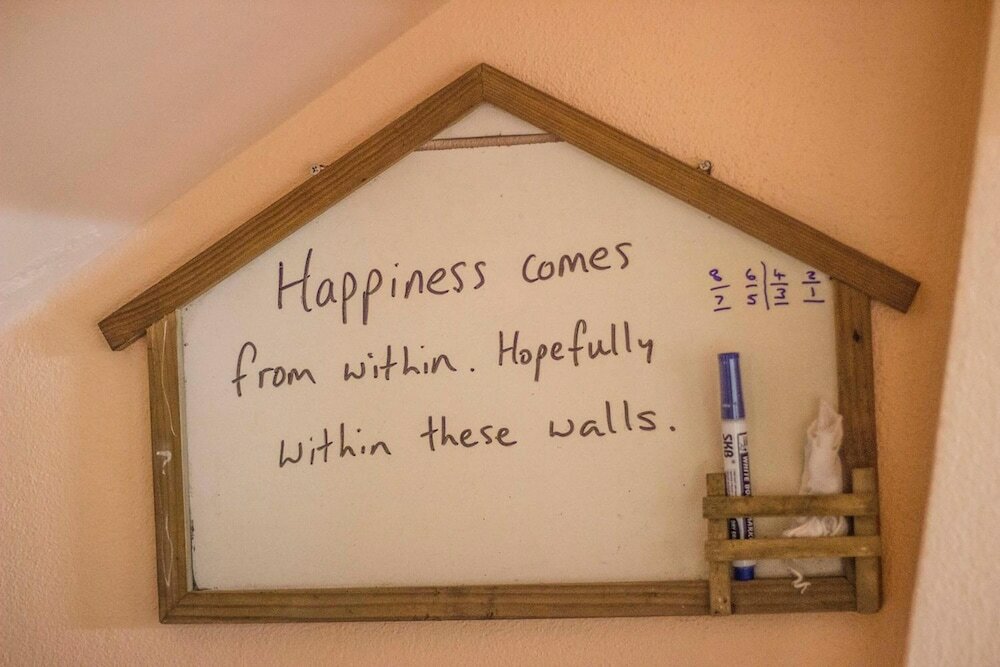 Happiness comes
from within. Hopefully
within these walls.
8 6 4 2
7 5 3 1
SKB
WHITE BO